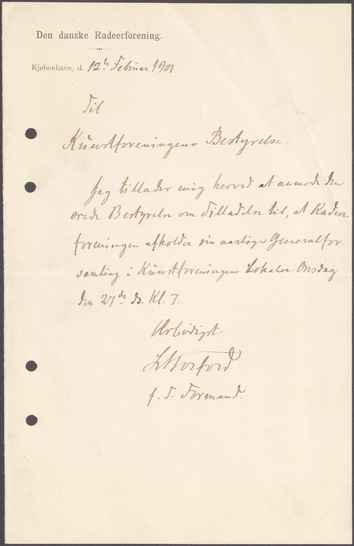 Den danske Radeerforening.
Kjøbenhavn, d. 12te Februar 1901
Til
Kunstforeningens Bestyrelse.
Jeg tillader mig herved at anmode den
ærede Bestyrelse om Tilladelse til, at Radeer
foreningen afholder sin aarlige Generalfor
samling i Kunstforeningens Lokaler Onsdag
den 27de ds. Kl. 7.
Ærbødigst
f. T. Formand.